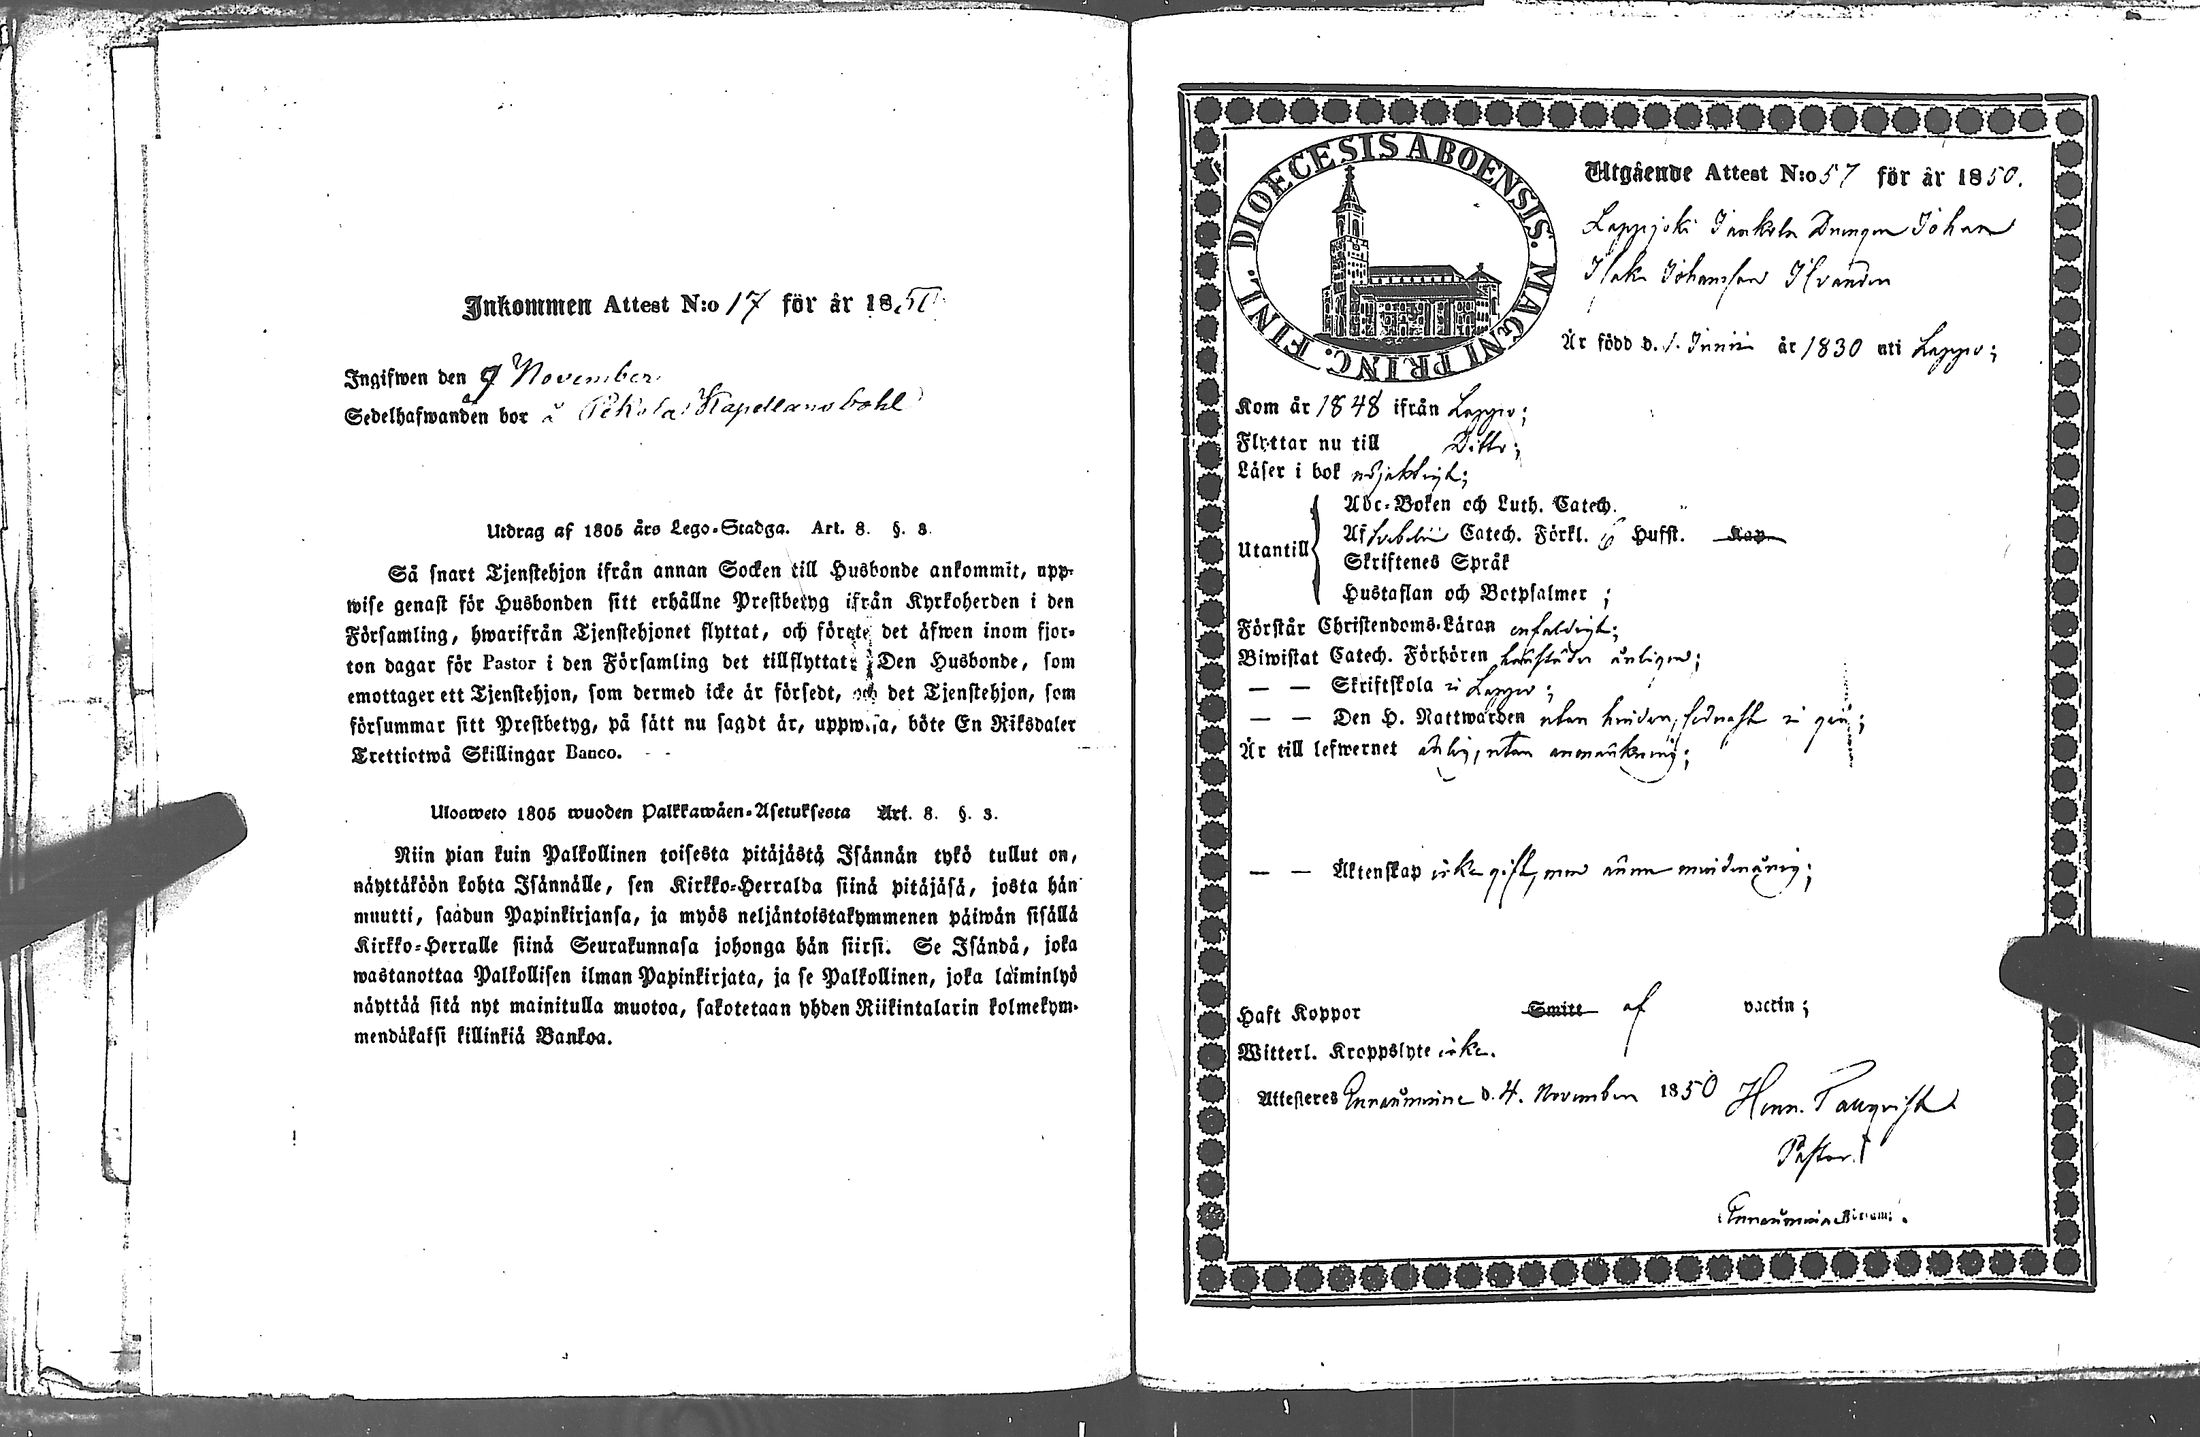 Inkommen Attest N:o 17 för år 1850
Ingifwen den 9 November
Sedelhafwanden bor å Pekola Kapellansbohl
Utdrag af 1805 års Lego-Stadga. Art. 8. §. 3.
Så snart Tjenstehjon ifrån annan Socken till Husbonde ankommit, upp-
wise genast för Husbonden sitt erhållne Prestbetyg ifrån Kyrkoherden i den
Församling, hwarifrån Tjenstehjonet flyttat, och förete det äfwen inom fjor-
ton dagar för Pastor i den Församling det tillflyttat; Den Husbonde, som
emottager ett Tjenstehjon, som dermed icke är försedt, och det Tjenstehjon, som
försummar sitt Prestbetyg, på sätt nu sagdt är, uppwisa, böte En Riksdaler
Trettiotwå Skillingar Banco.
Ulosweto 1805 wuoden Palkkawäen-Asetuksesta Art. 8. §. 3.
Niin pian kuin Palkollinen toisesta pitäjästä Isännän tykö tullut on,
näyttäköön kohta Isännälle, sen Kirkko-Herralda siinä pitäjäsä, josta hän
muutti, saadun Papinkirjansa, ja myös neljäntoistakymmenen päiwän sisällä
Kirkko-Herralle siinä Seurakunnasa johonga hän siirsi. Se Isändä, joka
wastanottaa Palkollisen ilman Papinkirjata, ja se Palkollinen, joka laiminlyö
näyttää sitä nyt mainitulla muotoa, sakotetaan yhden Riikintalarin kolmekym-
mendäkaksi killinkiä Bankoa.
DIOECESIS ABOENSIS. MAGNI PRINC. FINL.
Utgående Attest N:o 57 för år 1850.
Lappijoki Drengen Johan
Isak Johansson
Är född d. 1. Junii år 1830 uti Lappo;
Kom år 1848 ifrån Lappo;
Flyttar nu till Ditto;
Läser i bok nöjaktigt;
Utantill
Abc-Boken och Luth. Catech.
Af Catech. Förkl. Hufst. Kap.
Skriftenes Språk
Hustaflan och Botpsalmer ;
Förstår Christendoms-Läran enfaldigt;
Biwistat Catech. Förhören
— — Skriftskola i Lappo;
— — Den H. Nattwarden utan hinder, sednast i
Är till lefwernet ärlig, utan anmärkning;
— — Äktenskap icke gift, men
Haft Koppor Smitt af vaccin ;
Witterl. Kroppslyte icke.
Attesteras d. 4. November 1850
Pastor.